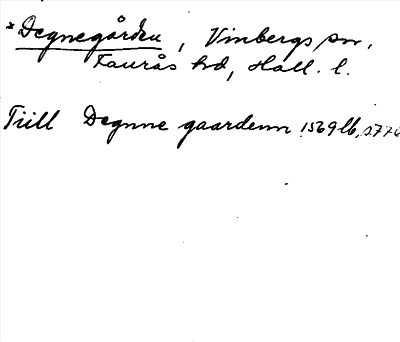 *Degnegården, Vinbergs sn,
Faurås hd, Hall. l.
Tiill Degnne gaardenn 1569 lb, s 77